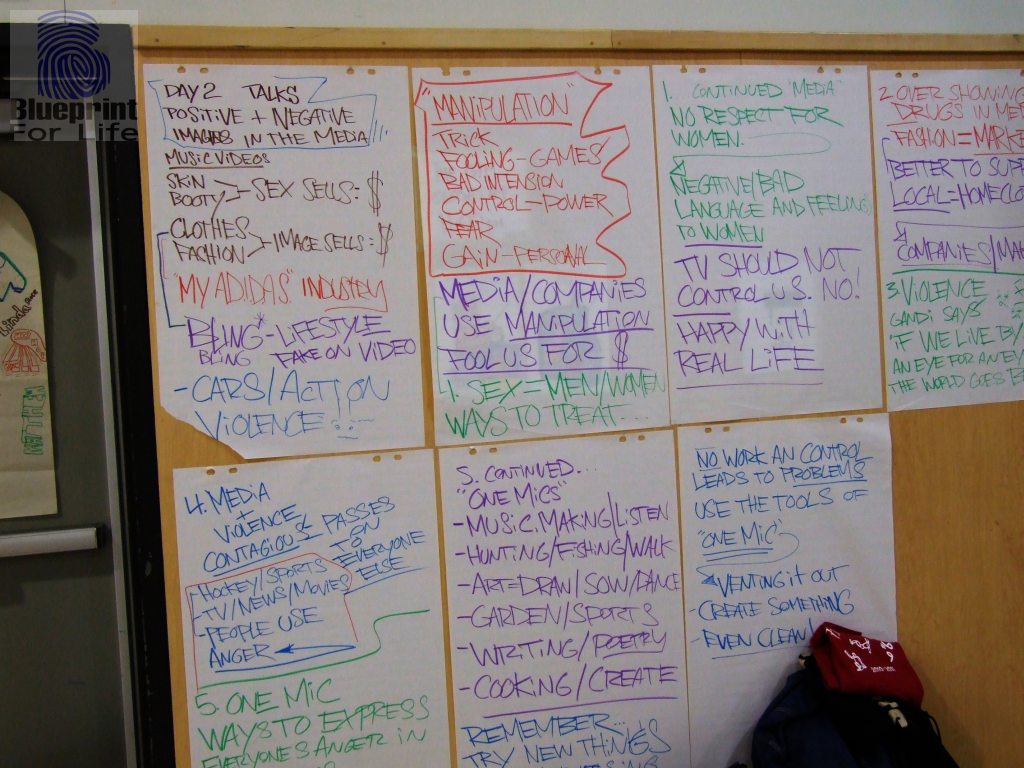 Blueprint
For Life
DAY 2 TALKS
POSITIVE + NEGATIVE
IMAGES IN THE MEDIA
MUSIC VIDEOS
SKIN
BOOTY >- SEX SELLS = $
CLOTHES
FASHION >- IMAGE SELLS = $
"MY ADIDAS" INDUSTRY
BLING - LIFESTYLE
BLING FAKE ON VIDEO
- CARS/ACTION
VIOLENCE
"MANIPULATION"
TRICK
FOOLING - GAMES
BAD INTENSION
CONTROL - POWER
FEAR
GAIN - PERSONAL
MEDIA/COMPANIES
USE MANIPULATION
FOOL US FOR $
1. SEX = MEN/WOMEN
WAYS TO TREAT...
1. CONTINUED "MEDIA"
NO RESPECT FOR
WOMEN.
&
NEGATIVE/BAD
LANGUAGE AND FEELING
TO WOMEN
TV SHOULD NOT
CONTROL US. NO!
HAPPY WITH
REAL LIFE
2 OVER SHOWING
DRUGS IN ME
FASHION = MARK
BETTER TO SUPP
LOCAL = HOME CLO
&
COMPANIES/MA
3. VIOLENCE
GANDI SAYS
"IF WE LIVE BY
AN EYE FOR AN EY
THE WORLD GOES B
4. MEDIA
+
VIOLENCE
CONTAGIOUS & PASSES
TO
EVERYONE
ELSE
- HOCKEY/SPORTS
- TV/NEWS/MOVIES
- PEOPLE USE
ANGER
5. ONE MIC
WAYS TO EXPRESS
EVERYONES ANGER IN
5. CONTINUED...
"ONE MICS"
- MUSIC MAKING/LISTEN
- HUNTING/FISHING/WALK
- ART = DRAW/SOW/DANCE
- GARDEN/SPORTS
- WRITING/POETRY
- COOKING/CREATE
REMEMBER...
TRY NEW THINGS
NO WORK AN CONTROL
LEADS TO PROBLEMS
USE THE TOOLS OF
"ONE MIC"
VENTING it OUT
- CREATE SOMETHING
- EVEN CLEAN!